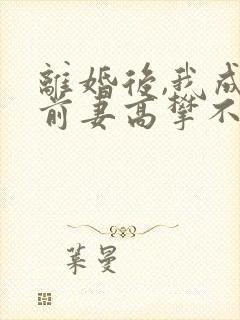 離婚後,我成
前妻高攀不
葉曼